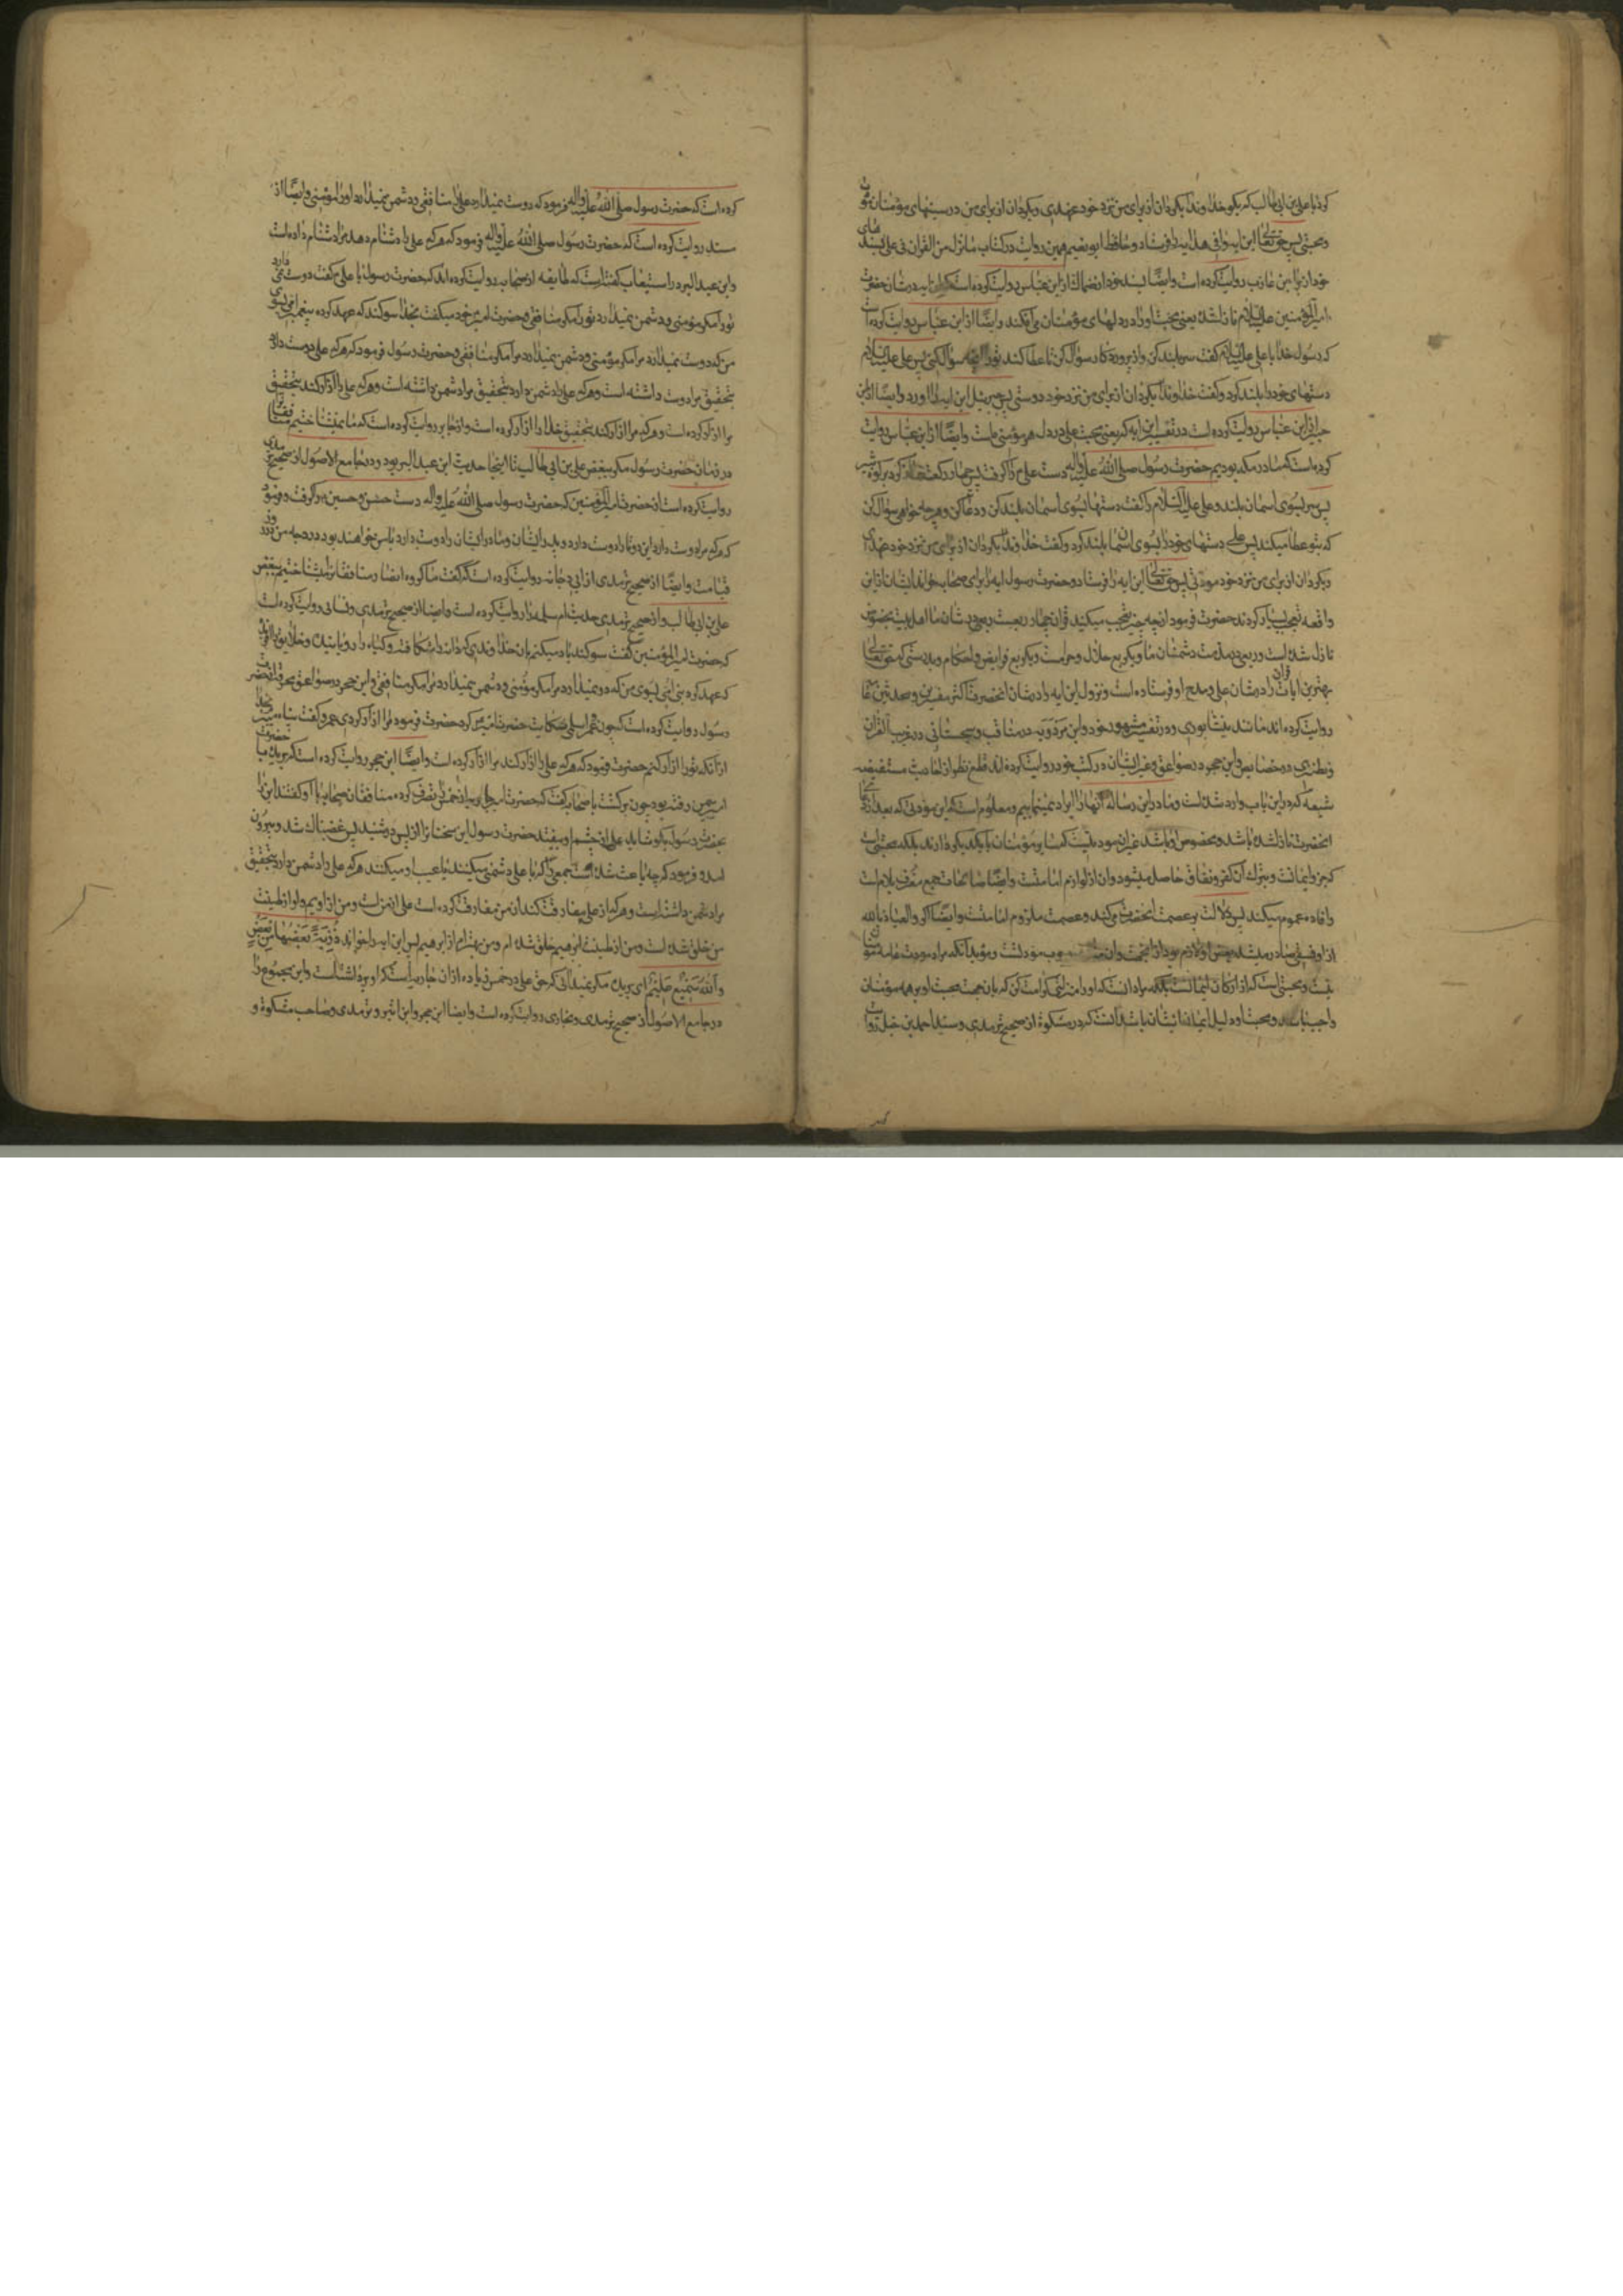 کرد با علی بن ابی طالب که بگو خداوندا بگردان از برای من نزد خود عهدی و بگردان از برای من در سینهای مؤمنان مودت
و محبتی پس حق تعالی این ایه وافی هدایه را فرستاد و حافظ ابو نعیم همین روایت در کتاب ما نزل من القرآن فی علی بسندهای
خود از براء بن عازب روایت کرده است وایضًا بسند خود از ضحاک از ابن عباس روایت کرده است که این ایه در شان حضرت
امیر المؤمنین علیه السلام نازل شده یعنی محبت او را در دلهای مؤمنان می افکند وایضًا از ابن عباس روایت کرده است
که رسول خدا با علی علیه السلام گفت سر بلند کن و از پروردگار سؤال کن تا عطا کند تو را آنچه سؤال کنی پس علی علیه السلام
دستهای خود را بلند کرد و گفت خداوندا بگردان از برای من نزد خود دوستی پس جبرئیل این ایه را اورد وایضًا از ابن
جبیر از ابن عباس روایت کرده است در تفسیر این ایه که یعنی محبت علی در دل هر مؤمنی هست وایضًا از ابن عباس روایت
کرده است که ما در مکه بودیم حضرت رسول صلی الله علیه واله دست علی را گرفت پس چهار رکعت نماز کرد بر کوه ثبیر
پس سر بسوی اسمان بلند و علی علیه السلام را گفت دستها بسوی اسمان بلند کن و دعا کن و هر چه خواهی سؤال کن
که بتو عطا میکند پس علی دستهای خود را بسوی اسمان بلند کرد و گفت خداوندا بگردان از برای من نزد خود عهدی
و بگردان از برای من نزد خود مودتی پس حق تعالی این ایه را فرستاد و حضرت رسول ایه را برای صحابه خواند ایشان از این
واقعه تعجب بسیار کردند حضرت فرمود از چه چیز تعجب میکنید قران چهار ربعست ربعی در شان ما اهل بیت بخصوص
نازل شده است و ربعی در مذمت دشمنان ما و یک ربع حلال و حرامست و یک ربع فرایض و احکام و بدرستی که حق تعالی
بهترین ایات قران را در شان علی و مدح او فرستاده است و نزول این ایه را در شان انحضرت اکثر مفسرین و محدثین عامه
روایت کرده اند مانند نیشابوری در تفسیر مشهور خود و ابن مردویه در مناقب و سجستانی در غریب القرآن
و نطنزی در خصایص و ابن حجر در صواعق و غیر ایشان در کتب خود روایت کرده اند قطع نظر از احادیث مستفیضه
شیعه که در این باب وارد شده است و ما در این رساله آنها را ایراد نمینماییم و معلومست که این مودتی که بعد از دعای
انحضرت نازل شده باشد و مخصوص او باشد غیر ان مودتیست که سایر مؤمنان با یکدیگر دارند بلکه محبتی است
که جزو ایمانست و بترک آن کفر و نفاق حاصل میشود و ان از لوازم امامتست وایضًا صالحات جمع معرف بلام است
و افاده عموم میکند پس دلالت بر عصمت انحضرت میکند و عصمت ملزوم امامتست وایضًا اگر والعیاذ بالله
از او فسقی صادر میشد بغض او لازم بود از انجهت و ان ... وجوب مودتست و مؤید آنکه مراد مودت عامه مؤمنان
نیست و محبتی است که از ارکان ایمانست بلکه مراد انست که او را منزلتی کرامت کن که بان جهت محبت او بر همه مؤمنان
واجب باشد و محبت او دلیل ایمان ایشان باشد آنست که در مشکوة از صحیح ترمدی و مسند احمد بن حنبل روایت
کرده است که حضرت رسول صلی الله علیه واله فرمود که دوست نمیدارد علی را منافقی و دشمن نمیدارد او را مؤمنی وایضًا از
مسند روایت کرده است که حضرت رسول صلی الله علیه واله فرمود که هر که علی را دشنام دهد مرا دشنام داده است
و ابن عبد البر در استیعاب گفته است که طایفه از صحابه روایت کرده اند که حضرت رسول با علی گفت دوست نمی دارد
تو را مگر مؤمنی و دشمن نمیدارد تو را مگر منافقی و حضرت امیر خود میگفت بخدا سوگند که عهد کرده پیغمبر امی بسوی
من که دوست نمیدارد مرا مگر مؤمنی و دشمن نمیدارد مرا مگر منافقی و حضرت رسول فرمود که هر که علی را دوست دارد
بتحقیق مرا دوست داشته است و هر که علی را دشمن دارد بتحقیق مرا دشمن داشته است و هر که علی را آزار کند بتحقیق
مرا ازار کرده است و هر که مرا ازار کند بتحقیق خدا را ازار کرده است و از جابر روایت کرده است که ما نمیشناختیم منافقانرا
در زمان حضرت رسول مگر ببغض علی بن ابی طالب تا اینجا حدیث ابن عبد البر بود و در جامع الاصول از صحیح ترمدی
روایت کرده است از حضرت امیر المؤمنین که حضرت رسول صلی الله علیه واله دست حسن و حسین را گرفت و فرمود
که هر که مرا دوست دارد و این دو تا را دوست دارد و پدر ایشان و مادر ایشان را دوست دارد با من خواهند بود در درجه من در روز
قیامت وایضًا از صحیح ترمدی از ابی دجانه روایت کرده است که گفت ما گروه انصار منافقانرا میشناختیم ببغض
علی بن ابی طالب و از صحیح ترمدی حدیث ام سلمه را روایت کرده است وایضا از صحیح ترمدی و نسائی روایت کرده است
که حضرت امیر المؤمنین گفت سوگند یاد میکنم بان خداوندی که دانه را شکافته و گیاه را رویانیده و خلایق را افریده
که عهد کرد نبی امی بسوی من که دوست نمیدارد مرا مگر مؤمنی و دشمن نمیدارد مرا مگر منافقی و ابن حجر در صواعق محرقه از حضرت
رسول روایت کرده است که چون عمر اسلمی شکایت حضرت امیر کرد حضرت فرمود مرا ازار کردی عمر و گفت پناه میبرم بخدا
از آنکه تو را ازار کنم حضرت فرمود که هر که علی را ازار کند مرا ازار کرده است وایضًا ابن حجر روایت کرده است که بریده با حضرت
امیر بیمن رفته بود چون برگشت با صحابه گفت که حضرت امیر جاریه از خمس را تصرف کرده منافقان صحابه با او گفتند این را
بحضرت رسول بگو شاید علی از چشم او بیفتد حضرت رسول این سخنانرا از پس در شنید پس غضبناک شد و بیرون
امده فرمود که چه باعث شده است جمعی را که با علی دشمنی میکنند یا عیب او میکنند هر که علی را دشمن دارد بتحقیق
مرا دشمن داشته است و هر که از علی مفارقت کند از من مفارقت کرده است علی از منست و من از اویم و او از طینت
من خلق شده است و من از طینت ابرهیم خلق شده ام و من بهترم از ابرهیم پس این ایه را خواند ذُرِّیَّةً بَعْضُهَا مِنْ بَعْضٍ
وَاللّهُ سَمِیعٌ عَلِیمٌ ای بریده مگر نمیدانی که حق علی در خمس زیاده از ان جاریه است که او برداشته است و این مجموع را
در جامع الاصول از صحیح ترمدی و بخاری روایت کرده است وایضا ابن حجر و ابن اثیر و ترمدی و صاحب مشکوة و